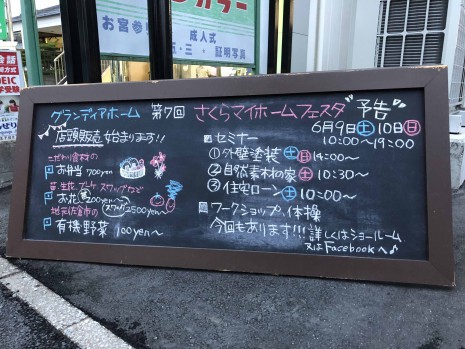 カラー
お宮参り
成人式
五・三・証明写真
会話
TOEIC
グランディアホーム 第7回 さくらマイホームフェスタ"予告"
6月9日土10日日
10:00〜19:00
店頭販売始まります!!
こだわり食材の
お弁当 700yen
苗、生花、ブーケ、スワッグなど
お花 200yen〜 スワッグ 2500yen〜
地元佐倉市の
有機野菜 100yen〜
セミナー
①外壁塗装 土 14:00〜
②自然素材の家 土 10:30〜
③住宅ローン 土 10:00〜
ワークショップ、体操
今回もあります!!!詳しくはショールーム
又はFacebookへ♪